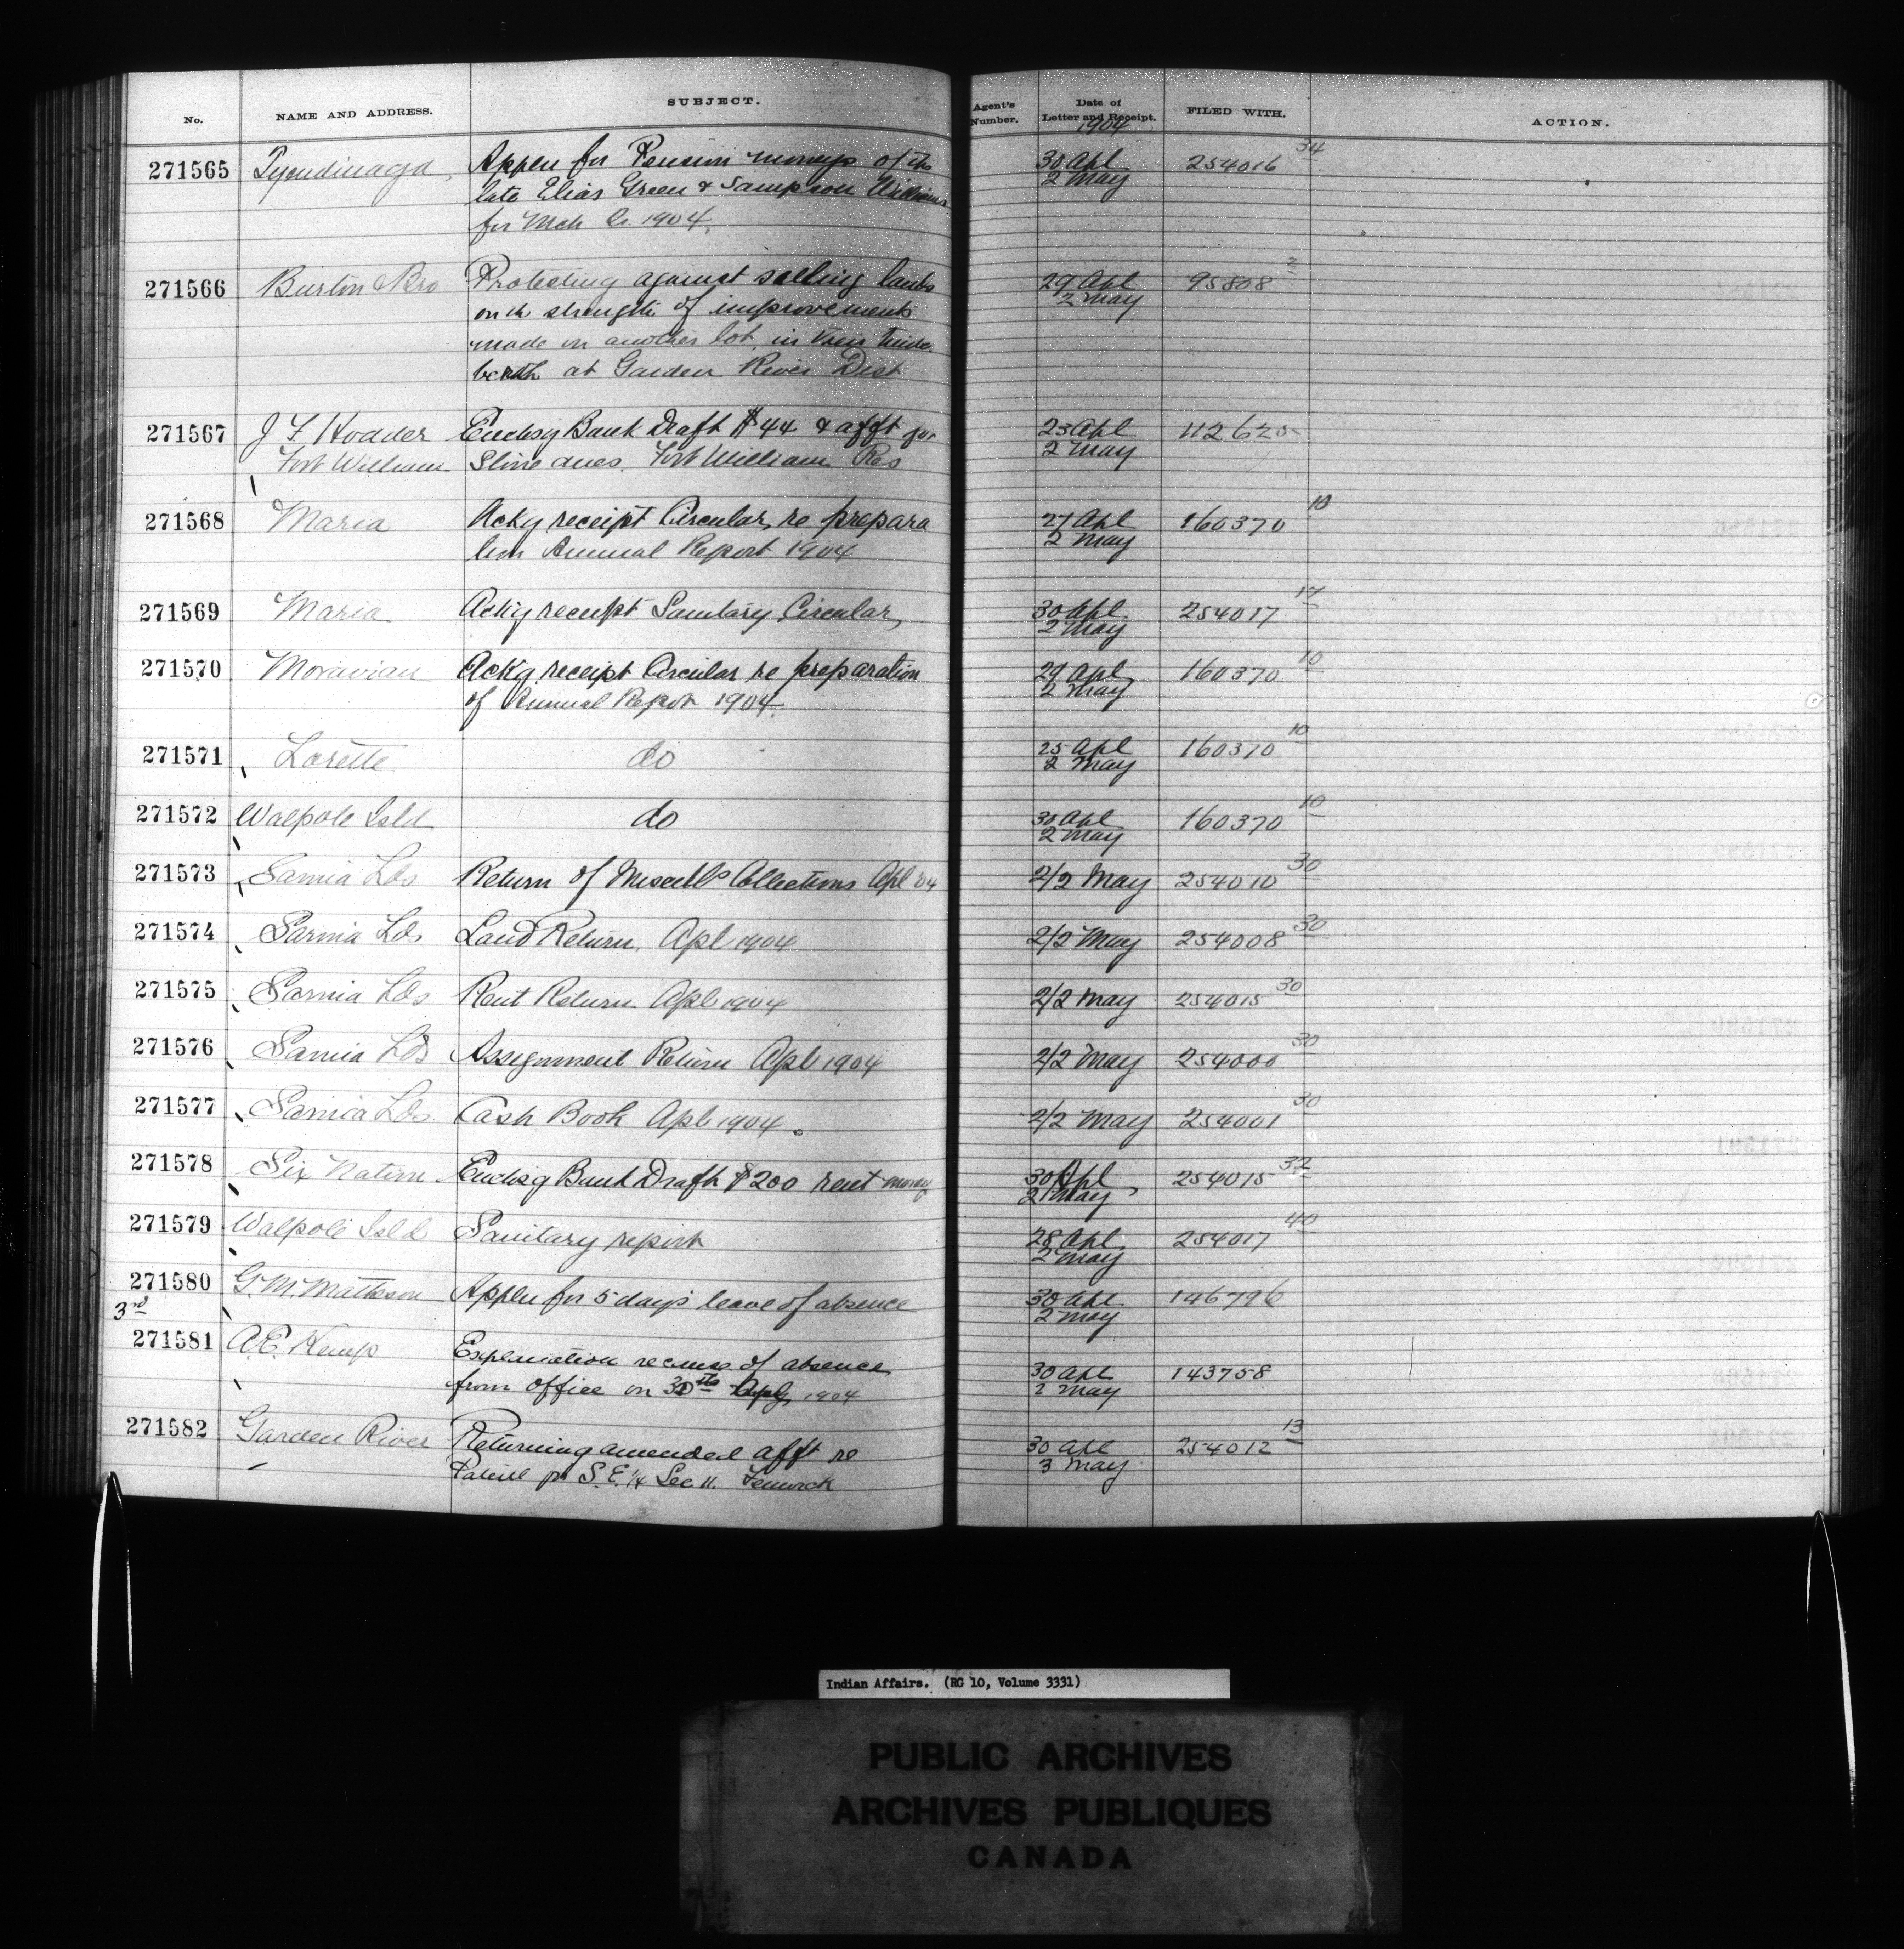 No. NAME AND ADDRESS. SUBJECT. Agent's Number. Date of Letter and Receipt. FILED WITH. ACTION.
1904
271565 Tyendinaga, Applen for Pension moneys of the 30 Apl 254016 34
late Elias Green & Sampson Williams 2 May
for Mch Qr. 1904.
271566 Burton Bro Protesting against selling lands 29 Apl 95808 2
on the strength of improvements 2 May
made on another lot, in their timber
berth at Garden River Dist
271567 J F Hodder Enclosg Bank Draft $44 & afft for 23 Apl 112625
Fort William Stone dues. Fort William Res 2 May
271568 Maria Ackg receipt Circular, re prepara 27 Apl 160370 10
tion Annual Report 1904 2 May
271569 Maria Ackg receipt Sanitary Circular, 30 Apl 254017 17
2 May
271570 Moravian Ackg receipt Circular re preparation 29 Apl 160370 10
of Annual Report 1904. 2 May
271571 Lorette do 25 Apl 160370 10
2 May
271572 Walpole Isld do 30 Apl 160370 10
2 May
271573 Sarnia Lds Return of Miscells Collections Apl 04 2/2 May 254010 30
271574 Sarnia Lds Land Return, Apl 1904 2/2 May 254008 30
271575 Sarnia Lds Rent Return Apl 1904 2/2 May 254015 30
271576 Sarnia Lds Assignment Return Apl 1904 2/2 May 254000 30
271577 Sarnia Lds Cash Book Apl 1904. 2/2 May 254001 30
271578 Six Nation Enclosg Bank Draft $200 rent money 30 Apl 254015 32
2 May
271579 Walpole Isld Sanitary report 28 Apl 254017 40
2 May
271580 G. M. Matheson Applen for 5 days leave of absence 30 Apl 146796
3rd 2 May
271581 A.E. Kemp Explanation re cause of absence 30 Apl 143758
from office on 30th Apl, 1904 2 May
271582 Garden River Returning amended afft re 30 Apl 254012 13
Patent for S.E. 1/4 Sec 11. Fenwick 3 May
Indian Affairs. (RG 10, Volume 3331)
PUBLIC ARCHIVES
ARCHIVES PUBLIQUES
CANADA